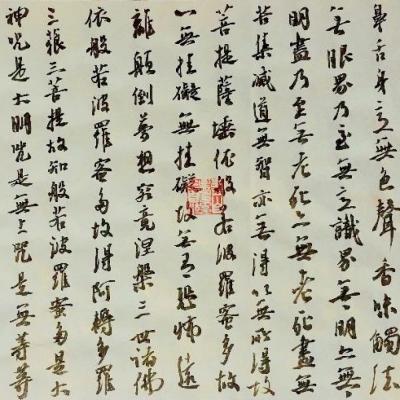 鼻舌身意無色聲香味觸法
無眼界乃至無意識界無無明亦無
明盡乃至無老死亦無老死盡無
苦集滅道無智亦無得以無所得故
菩提薩埵依般若波羅蜜多故
心無挂礙無挂礙故無有恐怖遠
離顛倒夢想究竟涅槃三世諸佛
依般若波羅蜜多故得阿耨多羅
三藐三菩提故知般若波羅蜜多是大
神咒是大明咒是無上咒是無等等